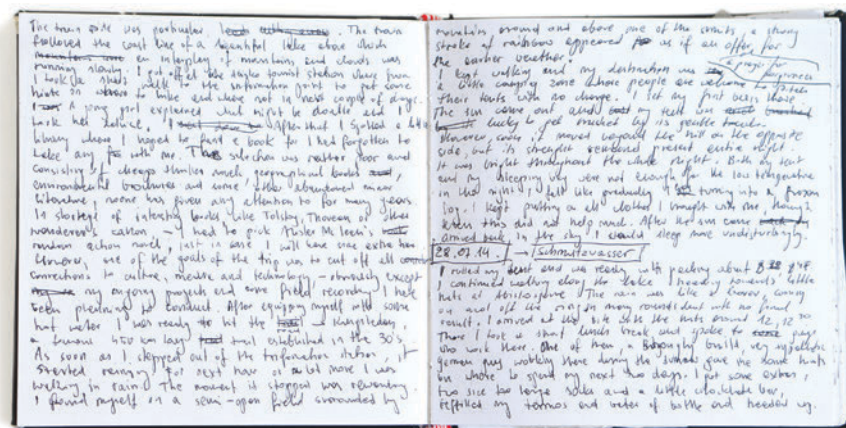 The train ride was particular, The train
followed the coast line of a beautiful lake above which
an interplay of mountains and clouds was
running slowly. I got off at the tourist station where from
I took a short walk to the information point to get some
hints on where to hike and where not in next couple of days.
A young girl explained what might be doable and I
took her advice. After that I spotted a little
library where I hoped to find a book for I had forgotten to
take any with me. The selection was rather poor and
consisting of cheap thriller novels, geographical books
environmental brochures and some other abandoned minor
literature, noone has given any attention to for many years.
In shortage of interesting books like Tolstoy, Thoreau or other
wanderer's canon, I had to pick Alister McLean's
random action novel, just in case I will have some extra
However, one of the goals of the trip was to cut off all
connections to culture, media and technology – obviously except
my ongoing projects and some field recording I have
been planning to conduct. After equiping myself with some
hot water I was ready to hit the trail – Kungsleden,
a famous 450 km long trail established in the 30's.
As soon as I stepped out of the information station, it
started raining. For next hour or a bit more I was
walking in rain. The moment it stopped was rewarding
I found myself on a semi-open field surrounded by
mountains around and above one of the summits a strong
stroke of rainbow appeared as if an offer, for
the earlier weather.
a prayer for forgiveness
I kept walking and my destination was
a little camping zone where people are welcome to pitch
their tents with no charge. I set my first basis there.
The sun came out and my tent was
lucky to get touched by its gentle
However, soon it moved beyond the hill on the opposite
side, but its strength remained present entire night.
It was bright throughout the whole night. Both my tent
and my sleeping bag were not enough for the low temperature
in the night, I felt like gradually turning into a frozen
log. I kept putting on all clothes I brought with me, though
even this did not help much. After the sun came
arrived back in the sky I could sleep more undisturbingly.
28.07.14. → Schmutzwasser
I rolled my tent and was ready with packing about
I continued walking along the lake heading towards little
huts at Abiskojaure. The rain was like a lover, coming
on and off the region many rounds but with no final
result. I arrived at the site with the huts around 12, 12
There I took a short lunch break and spoke to guys
who work there. One of them, a strongly build, very sympathetic
german guy working there during the summer gave me some hints
on where to spend my next two days. I got some
two size too large socks and a little chocolate bar,
refilled my termos and water of bottle and headed up.